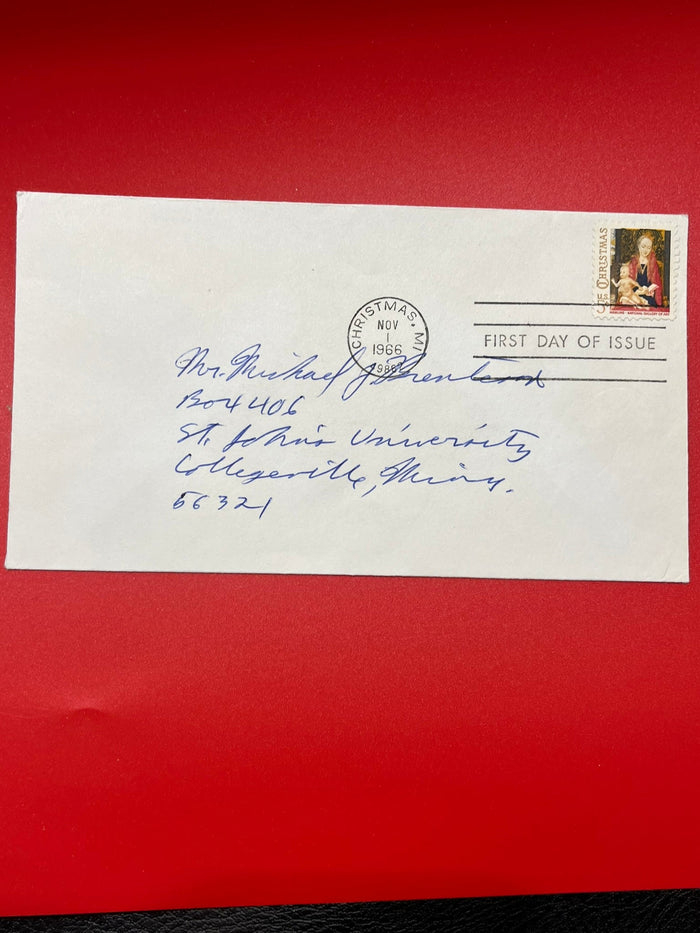 5c CHRISTMAS
MEMLING · NATIONAL GALLERY OF ART
CHRISTMAS, MI
NOV
1
1966
FIRST DAY OF ISSUE
Mr. Michael J.
Box 406
St. John's University
Collegeville, Minn.
56321